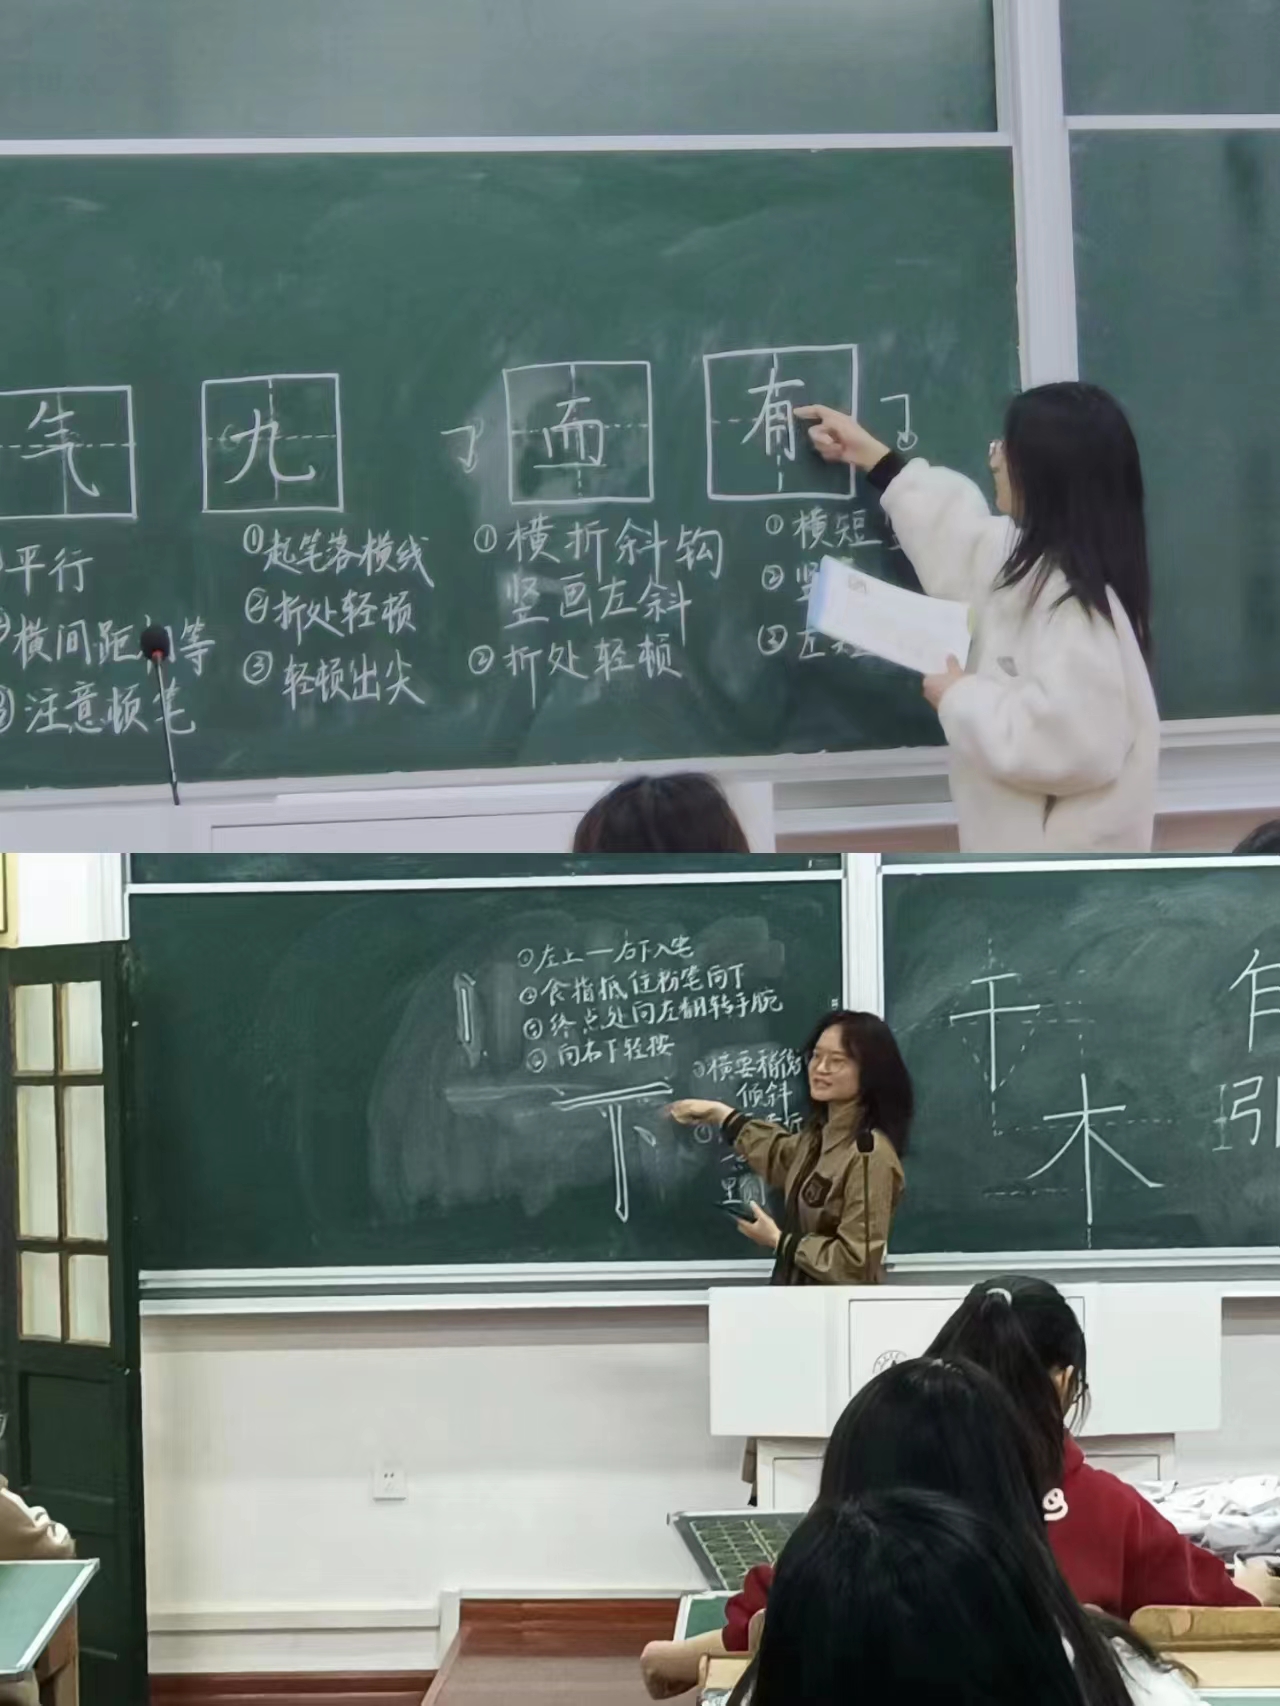 气 九 而 有
平行
横间距相等
③注意顿笔
①起笔落横线
②折处轻顿
③轻顿出尖
①横折斜钩
竖画左斜
②折处轻顿
①横短
②竖
③左
①左上一右下入笔
②食指抵住粉笔向下
③终点处向左翻转手腕
④向右下轻按
下
③横要稍微
倾斜
千
木